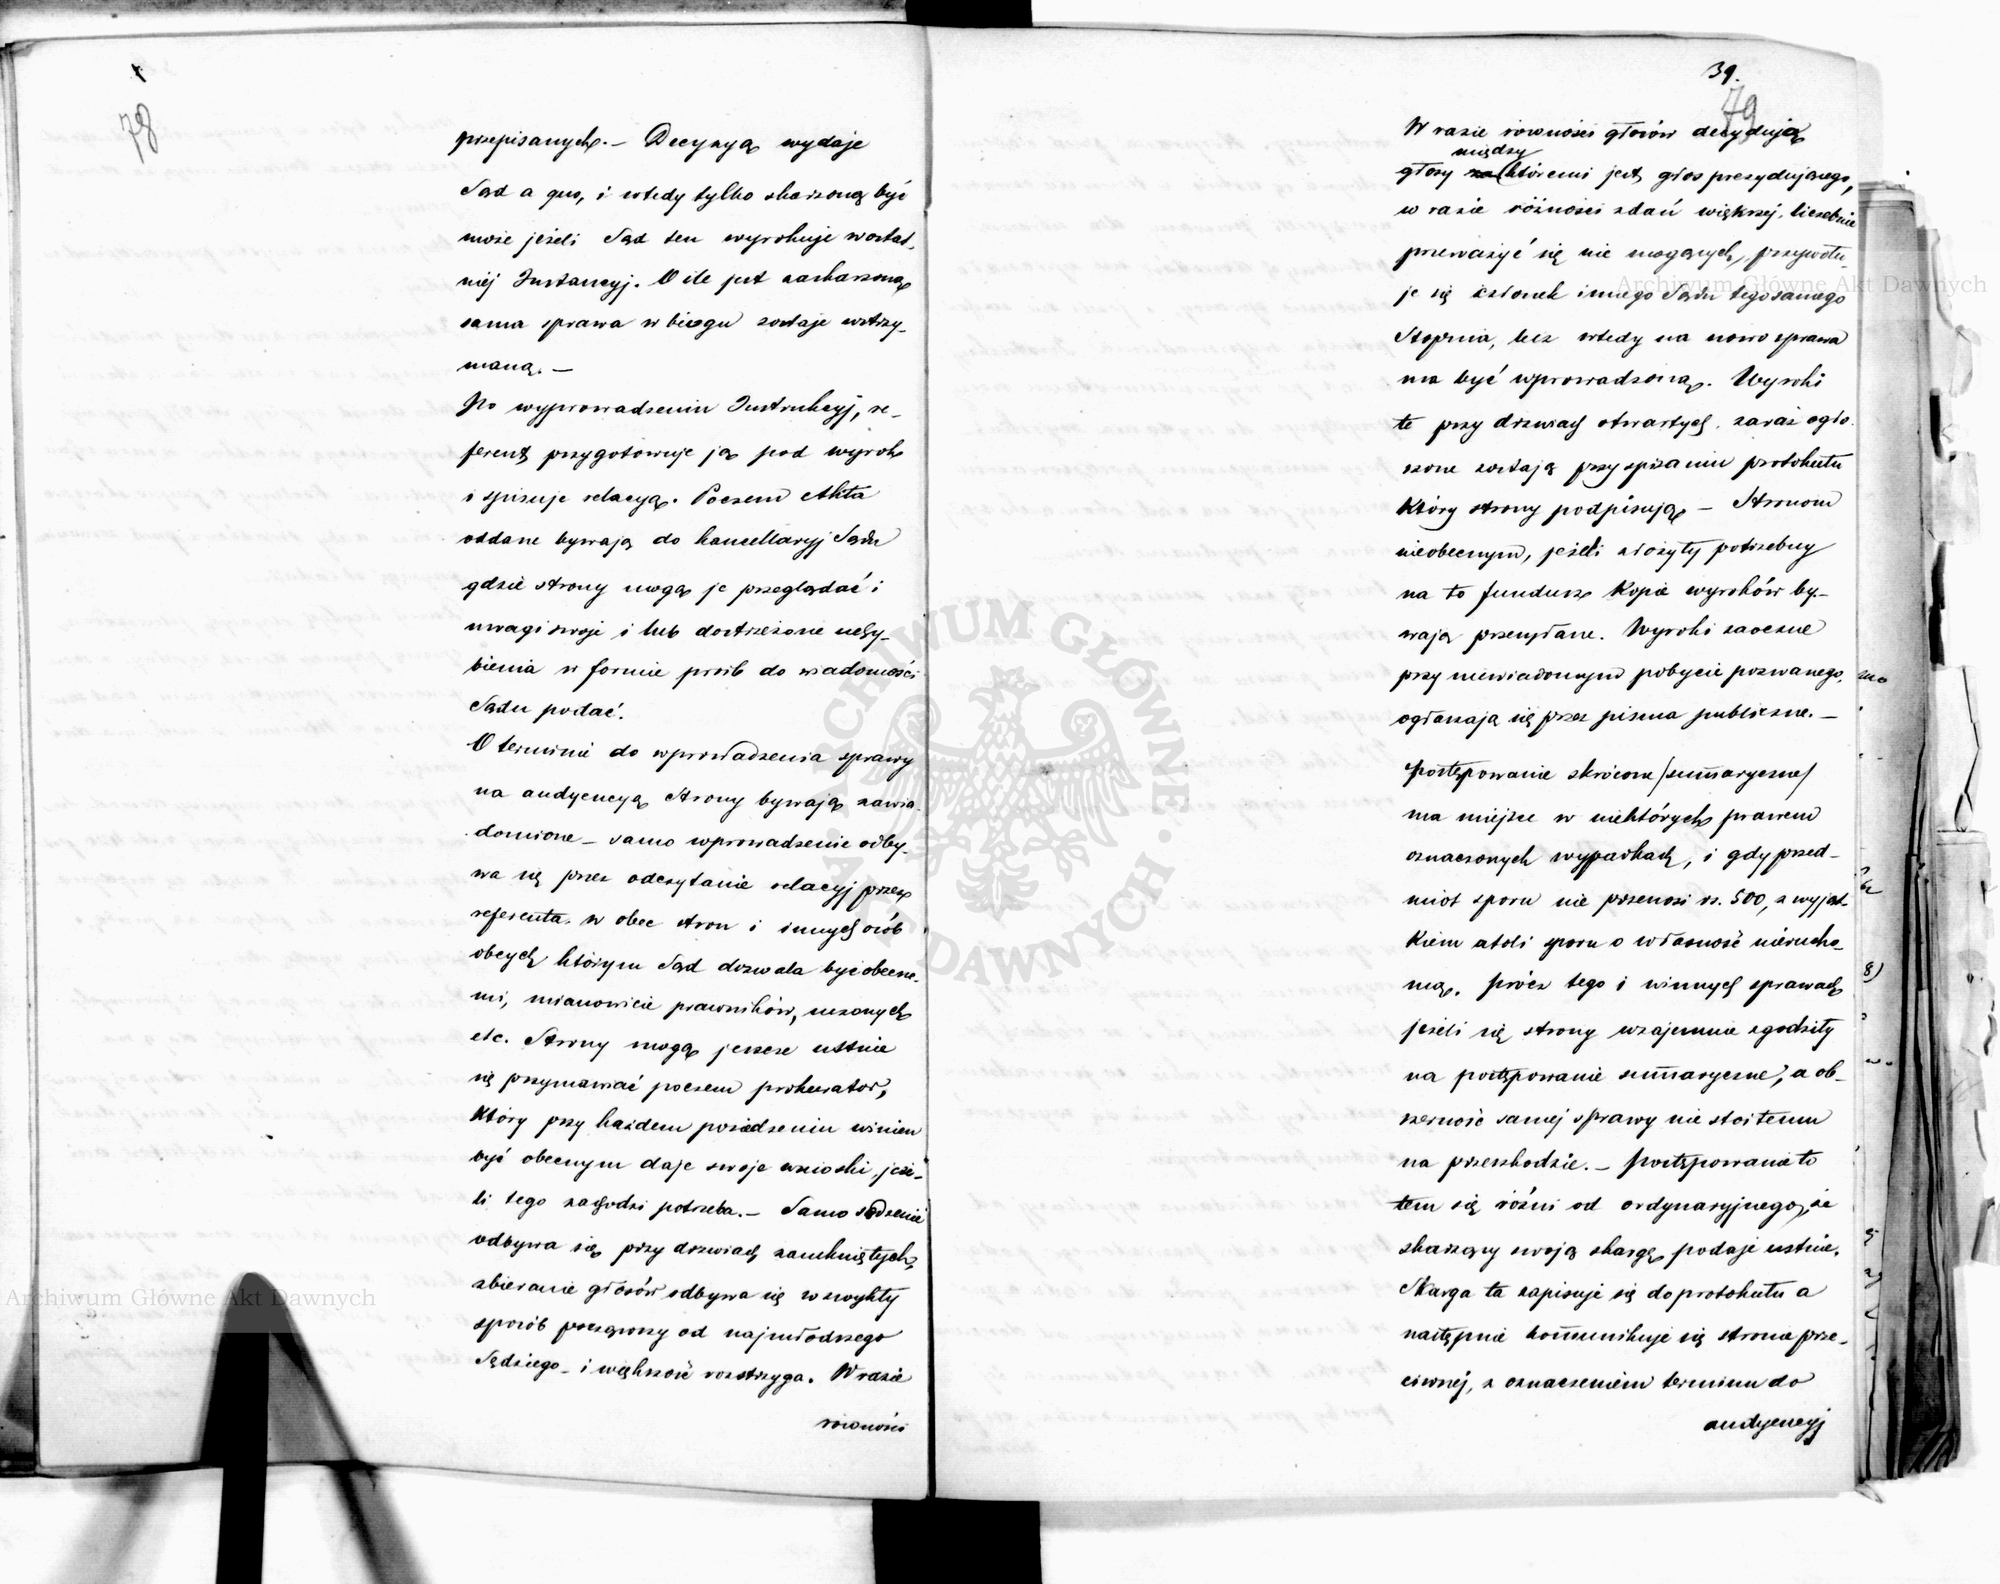 78
przepisanych. – Decyzyą wydaje
Sąd a quo, i wtedy tylko skarżoną być
może jeżeli Sąd ten wyrokuje w ostat-
niéj Instancyj. O ile jest zaskarżoną
sama sprawa w biegu zostaje wstrzy-
maną. –
Po wyprowadzeniu Instrukcyj, re-
ferent przygotowuje ją pod wyrok
i spisuje relacyą. Poczem Akta
oddane bywają do kancellaryj Sądu
gdzie strony mogą je przeglądać i
uwagi swoje i lub dostrzeżone uchy-
bienia w formie prośb do wiadomości
Sądu podać.
O terminie do wprowadzenia sprawy
na audyencyą Strony bywają zawia-
domione – samo wprowadzenie odby-
wa się przez odczytanie relacyj przez
referenta w obec stron i innych osób
obcych którym Sąd dozwala być obecne-
mi, mianowicie prawników, uczonych
etc. Strony mogą jeszcze ustnie
się przymawiać poczem prokurator,
który przy każdem posiedzeniu winien
być obecnym daje swoje wnioski jeże-
li tego zachodzi potrzeba. – Samo sądzenie
odbywa się przy drzwiach zamkniętych,
zbieranie głosów odbywa się w zwykły
sposób począwszy od najmłodszego
Sędziego – i większość rozstrzyga. W razie
równości
39.
79
W razie równości głosów decydują
między
głosy któremi jest głos prezydującego,
w razie różności zdań większéj liczebnie
przeważyć się nie mogących, przywołu-
je się członek innego Sądu tegosamego
Stopnia, lecz wtedy na nowo sprawa
ma być wprowadzoną. Wyroki
te przy drzwiach otwartych zaraz ogło-
szone zostają przy spisaniu protokułu
który strony podpisują – Stronom
nieobecnym, jeżeli złożyły potrzebny
na to fundusz kopie wyroków by-
wają przesyłane. Wyroki zaoczne
przy niewiadomym pobycie pozwanego,
ogłaszają się przez pisma publiczne. –
Postępowanie skrócone /sum̄aryczne/
ma miejsce w niektórych prawem
oznaczonych wypadkach, i gdy przed-
miot sporu nie przenosi rs. 500, z wyjąt-
kiem atoli sporu o własność nierucho-
mą. Prócz tego i w innych sprawach
jeżeli się strony wzajemnie zgodziły
na postępowanie sum̄aryczne, a ob-
szerność saméj sprawy nie stoi temu
na przeszkodzie. – Postępowanie to
tem się różni od ordynaryjnego, że
skarżący swoją skargę podaje ustnie.
Skarga ta zapisuje się do protokułu a
następnie kom̄unikuje się stronie prze-
ciwnéj, z oznaczeniem terminu do
audyencyj
Archiwum Główne Akt Dawnych
Archiwum Główne Akt Dawnych
ARCHIWUM GŁÓWNE AKT DAWNYCH